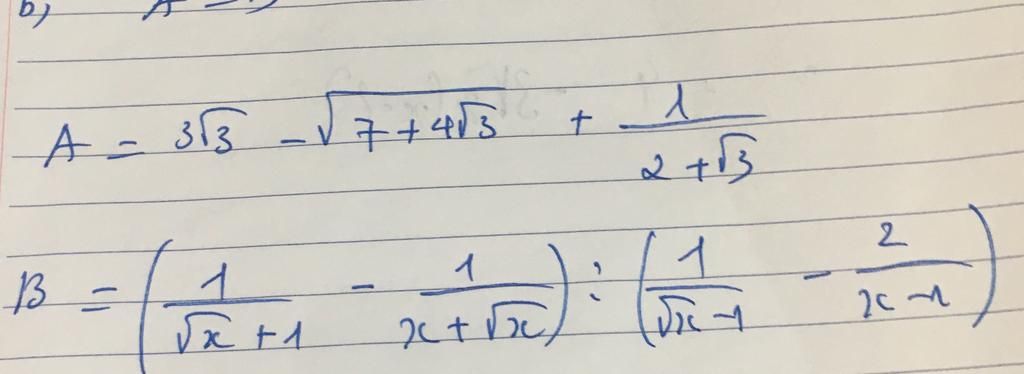 b)
A = 3√3 - √(7 + 4√3) + 1/(2 + √3)
B = (1/(√x + 1) - 1/(x + √x)) : (1/(√x - 1) - 2/(x - 1))